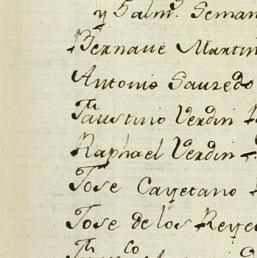 y 5 alm.ˢ Seman
Bernave Martin
Antonio Sauzedo
Faustino Verdin
Raphael Verdin
Jose Cayetano
Jose de los Reyes